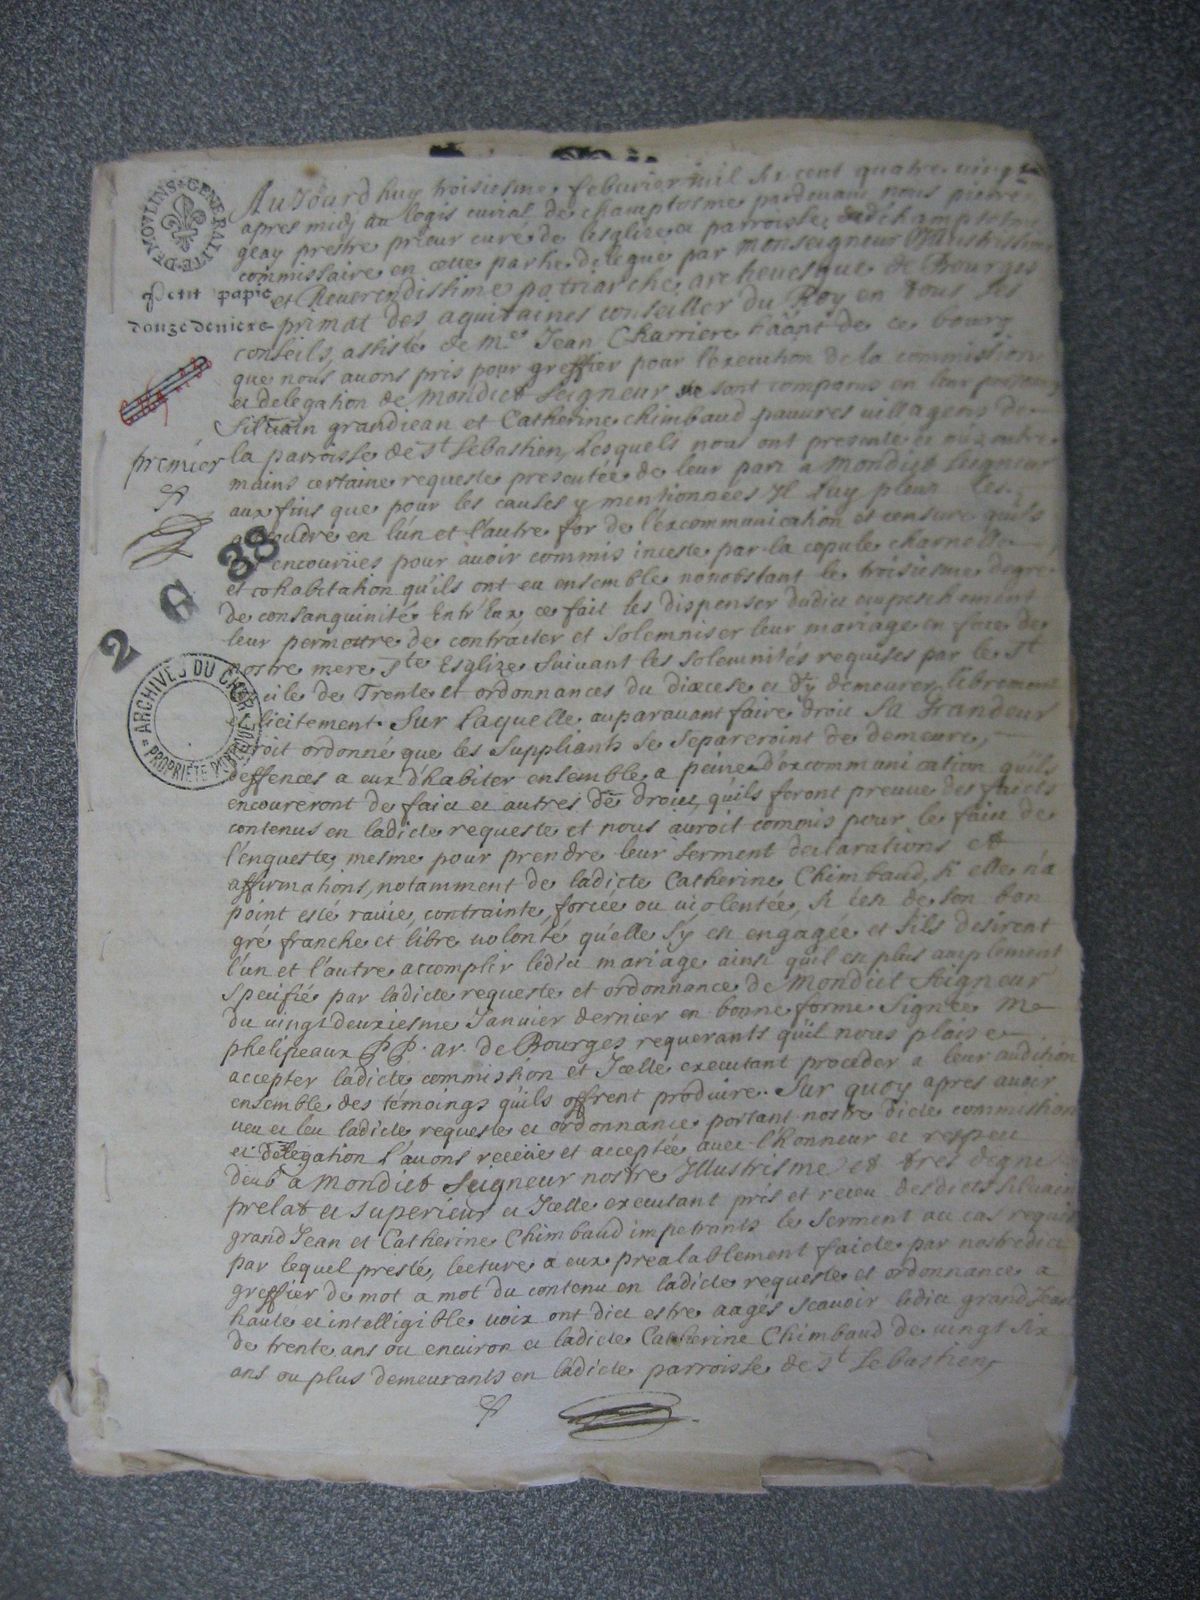 GENERALITE DE MOVLINS
petit papie
douze deniers
premier
2 G 38
ARCHIVES DU CHER
PROPRIÉTÉ PUBLIQUE
Aujourdhuy troisiesme febuvier mil six cent quatre vingt
apres midy au logis curial de champtosme pardevant nous pierre
geay prestre prieur curé de lesglize et parroisse dudit champtosme
commissaire en cette partie delegué par Monseigneur Illustrissime
et Reuerendissime patriarche archeuesque de Bourges
primat des aquitaines conseiller du Roy en tous ses
conseils, assisté de Me Jean Charriere de ce bourg
que nous auons pris pour greffier pour l'execution de la commission
et delegation de Mondict Seigneur se sont comparus en leur personnes
Siluain grandjean et Catherine Chimbaud pauures uillagens de
la parroisse de St Sebastien, Lesquels nous ont presenté et mis entre
mains certaine requeste presentée de leur part a Mondict Seigneur
aux fins que pour les causes y mentionnees Il luy pleut les
absoudre en l'un et l'autre for de l'excommunication et censure qu'ils
encouriies pour auoir commis inceste par la copule charnelle
et cohabitation qu'ils ont eu ensemble nonobstant le troisiesme degre
de consanguinité Entr'Eux ce fait les dispenser dudict empeschement
leur permettre de contracter et solemniser leur mariage en face de
nostre mere Ste Esglize suivant les solemnités requises par le St
cile de Trente et ordonnances du dioxcese et d'y demeurer librement
et licitement. Sur laquelle auparauant faire droit Sa Grandeur
auroit ordonné que les suppliants se separeroint de demeure,
deffences a eux d'habiter ensemble a peine d'excommunication qu'ils
encoureront de faict et autres de droict, qu'ils feront preuue des faicts
contenus en ladicte requeste et nous auroit commis pour le faict de
l'enqueste mesme pour prendre leur serment declarations et
affirmations, notamment de ladicte Catherine Chimbaud, si elle n'a
point esté rauie, contrainte, forcée ou uiolentée, si c'est de son bon
gré franche et libre uolonté qu'elle s'y est engagée et s'ils desirent
l'un et l'autre accomplir ledict mariage ainsi qu'il est plus amplement
specifié par ladicte requeste et ordonnance de Mondict Seigneur
du uingt deuxiesme Januier dernier en bonne forme Signée M
phelipeaux PP. ar. de Bourges requerants qu'il nous plaise
accepter ladicte commission et Icelle executant proceder a leur audition
ensemble des témoings qu'ils offrent produire. Sur quoy apres auoir
ueu et leu ladicte requeste et ordonnance portant nostre dicte commission
et delegation l'auons receüe et acceptée auec l'honneur et respect
deub a Mondict Seigneur nostre Illustrisme et tres digne
prelat et superieur et Icelle executant pris et receu desdicts Siluain
grand Jean et Catherine Chimbaud impetrants le serment au cas requis
par lequel presté, lecture a eux prealablement faicte par nostredict
greffier de mot a mot du contenu en ladicte requeste et ordonnance a
haute et intelligible uoix ont dict estre aagés scauoir ledict grand Jean
de trente ans ou enuiron et ladicte Catherine Chimbaud de uingt six
ans ou plus demeurants en ladicte parroisse de St Sebastien,